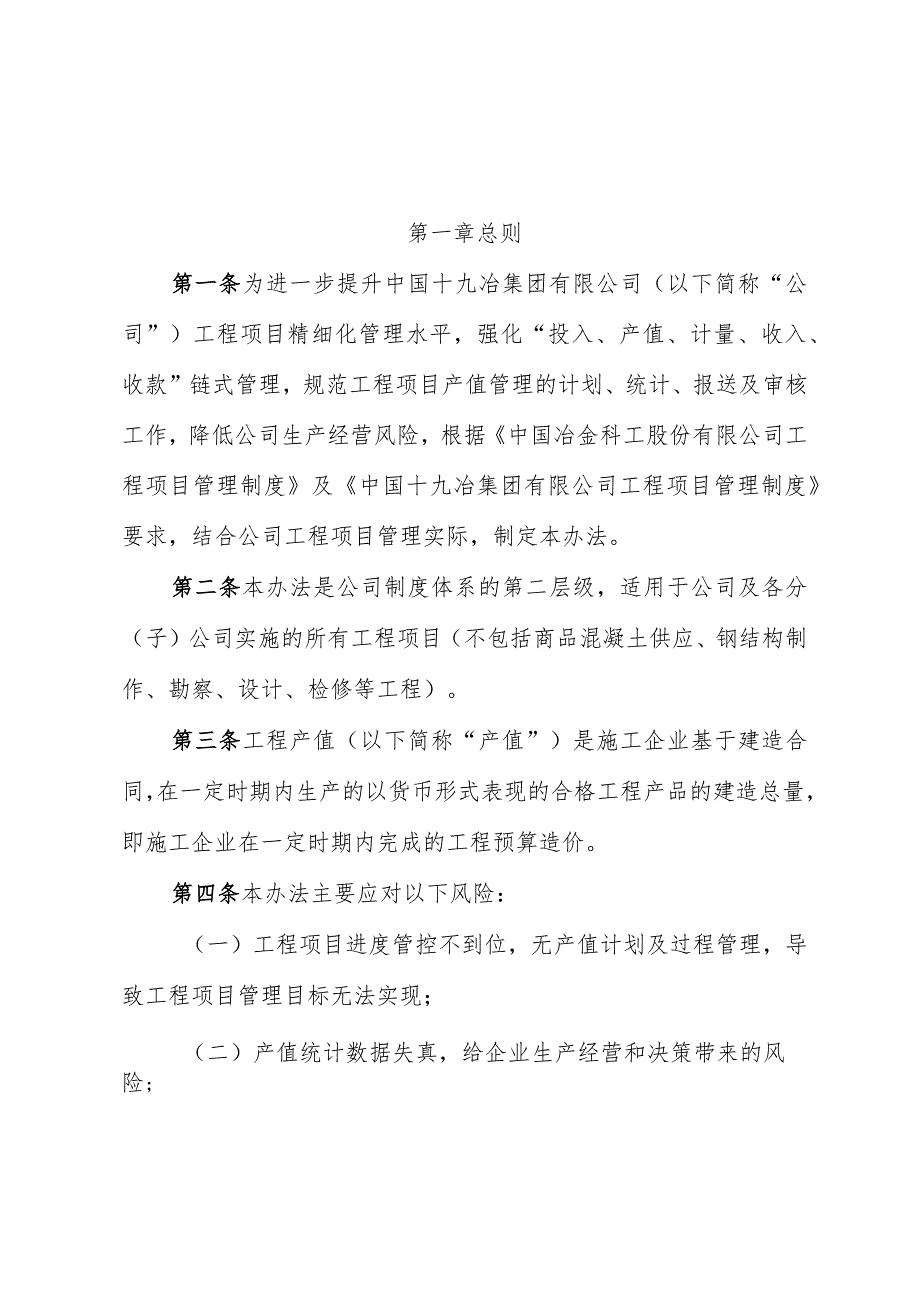 第一章总则
第一条为进一步提升中国十九冶集团有限公司（以下简称“公
司”）工程项目精细化管理水平，强化“投入、产值、计量、收入、
收款”链式管理，规范工程项目产值管理的计划、统计、报送及审核
工作，降低公司生产经营风险，根据《中国冶金科工股份有限公司工
程项目管理制度》及《中国十九冶集团有限公司工程项目管理制度》
要求，结合公司工程项目管理实际，制定本办法。
第二条本办法是公司制度体系的第二层级，适用于公司及各分
（子）公司实施的所有工程项目（不包括商品混凝土供应、钢结构制
作、勘察、设计、检修等工程）。
第三条工程产值（以下简称“产值”）是施工企业基于建造合
同，在一定时期内生产的以货币形式表现的合格工程产品的建造总量，
即施工企业在一定时期内完成的工程预算造价。
第四条本办法主要应对以下风险：
（一）工程项目进度管控不到位，无产值计划及过程管理，导
致工程项目管理目标无法实现；
（二）产值统计数据失真，给企业生产经营和决策带来的风
险；